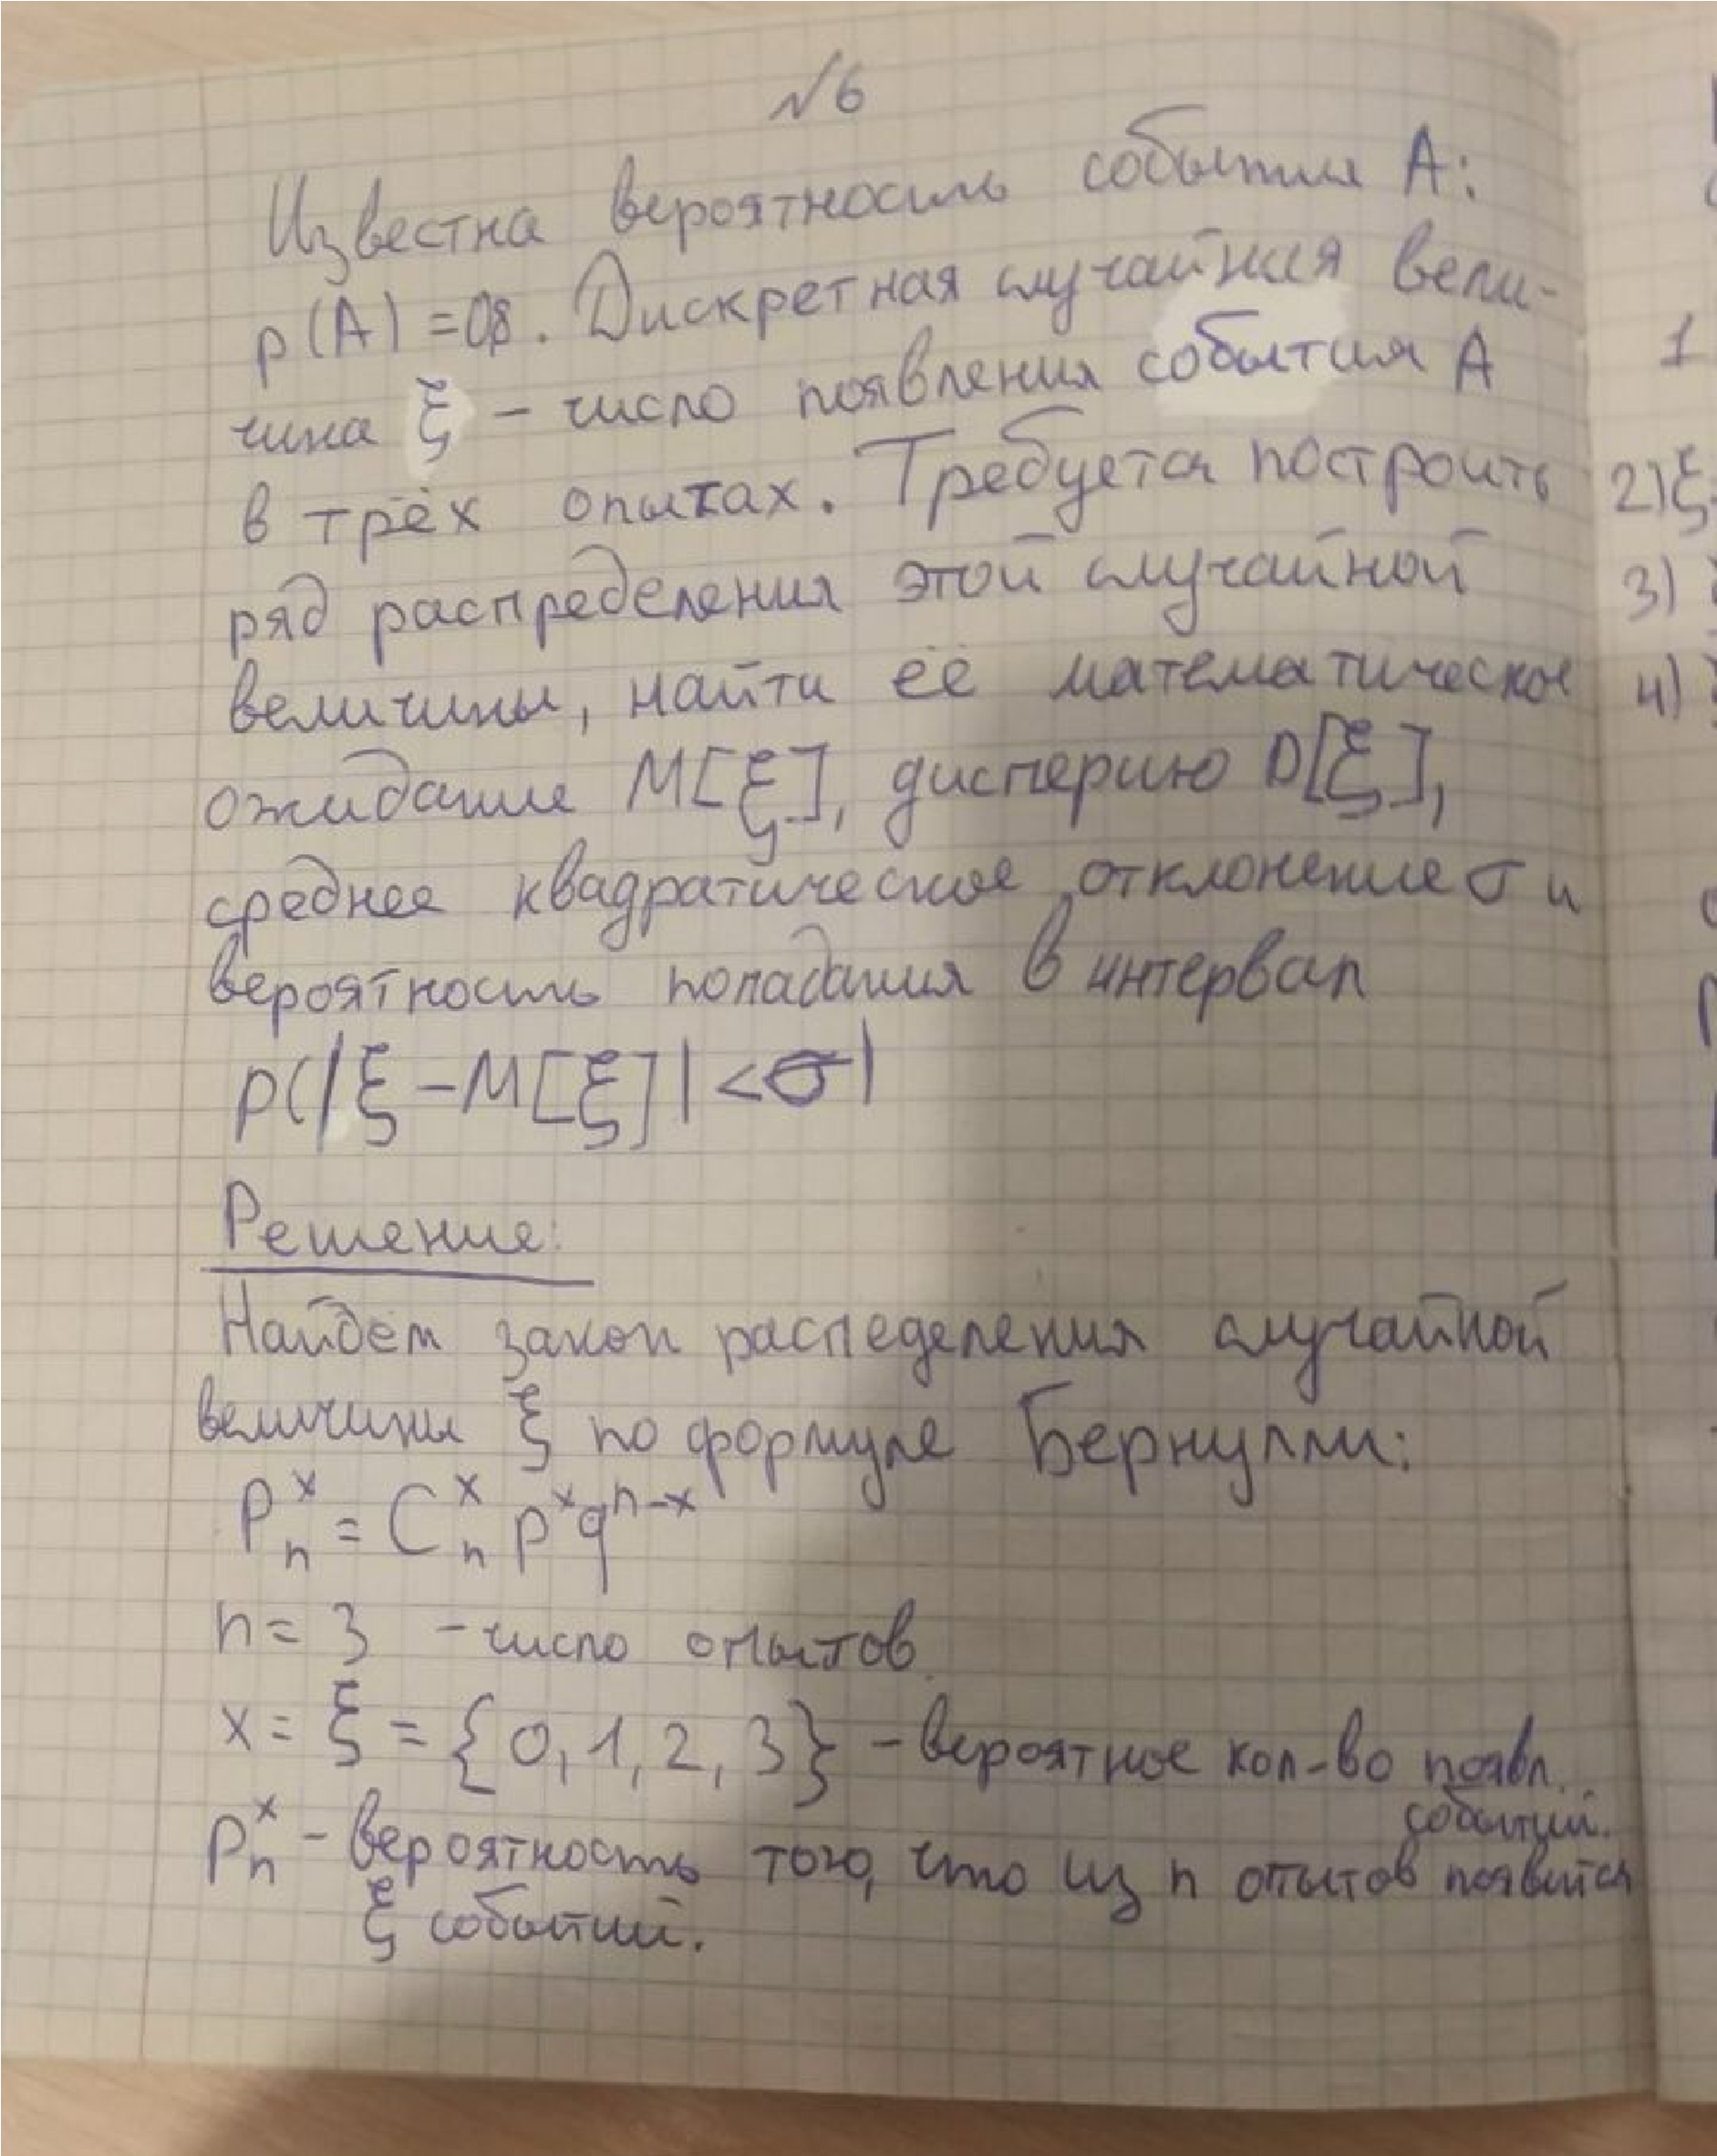 №6
Известна вероятность события А:
p(A) = 0,8. Дискретная случайная вели-
чина ξ – число появления события А
в трёх опытах. Требуется построить
ряд распределения этой случайной
величины, найти её математическое
ожидание M[ξ], дисперию D[ξ],
среднее квадратическое отклонение σ и
вероятность попадания в интервал
p(|ξ – M[ξ]| < σ|
Решение:
Найдём закон распеделения случайной
величины ξ по формуле Бернулли:
P_n^x = C_n^x p^x q^{n-x}
n = 3 – число опытов
x = ξ = {0, 1, 2, 3} – вероятное кол-во появл.
событий.
P_n^x – вероятность того, что из n опытов появится
ξ событий.
1
2) ξ
3)
4)